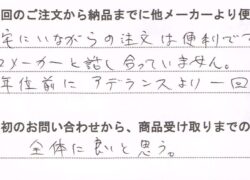 回のご注文から納品までに他メーカーより便
宅にいながらの注文は便利でで
メーカーと話し合っていません。
年位前にアデランスより一回
初のお問い合わせから、商品受け取りまでの
全体に良いと思う。